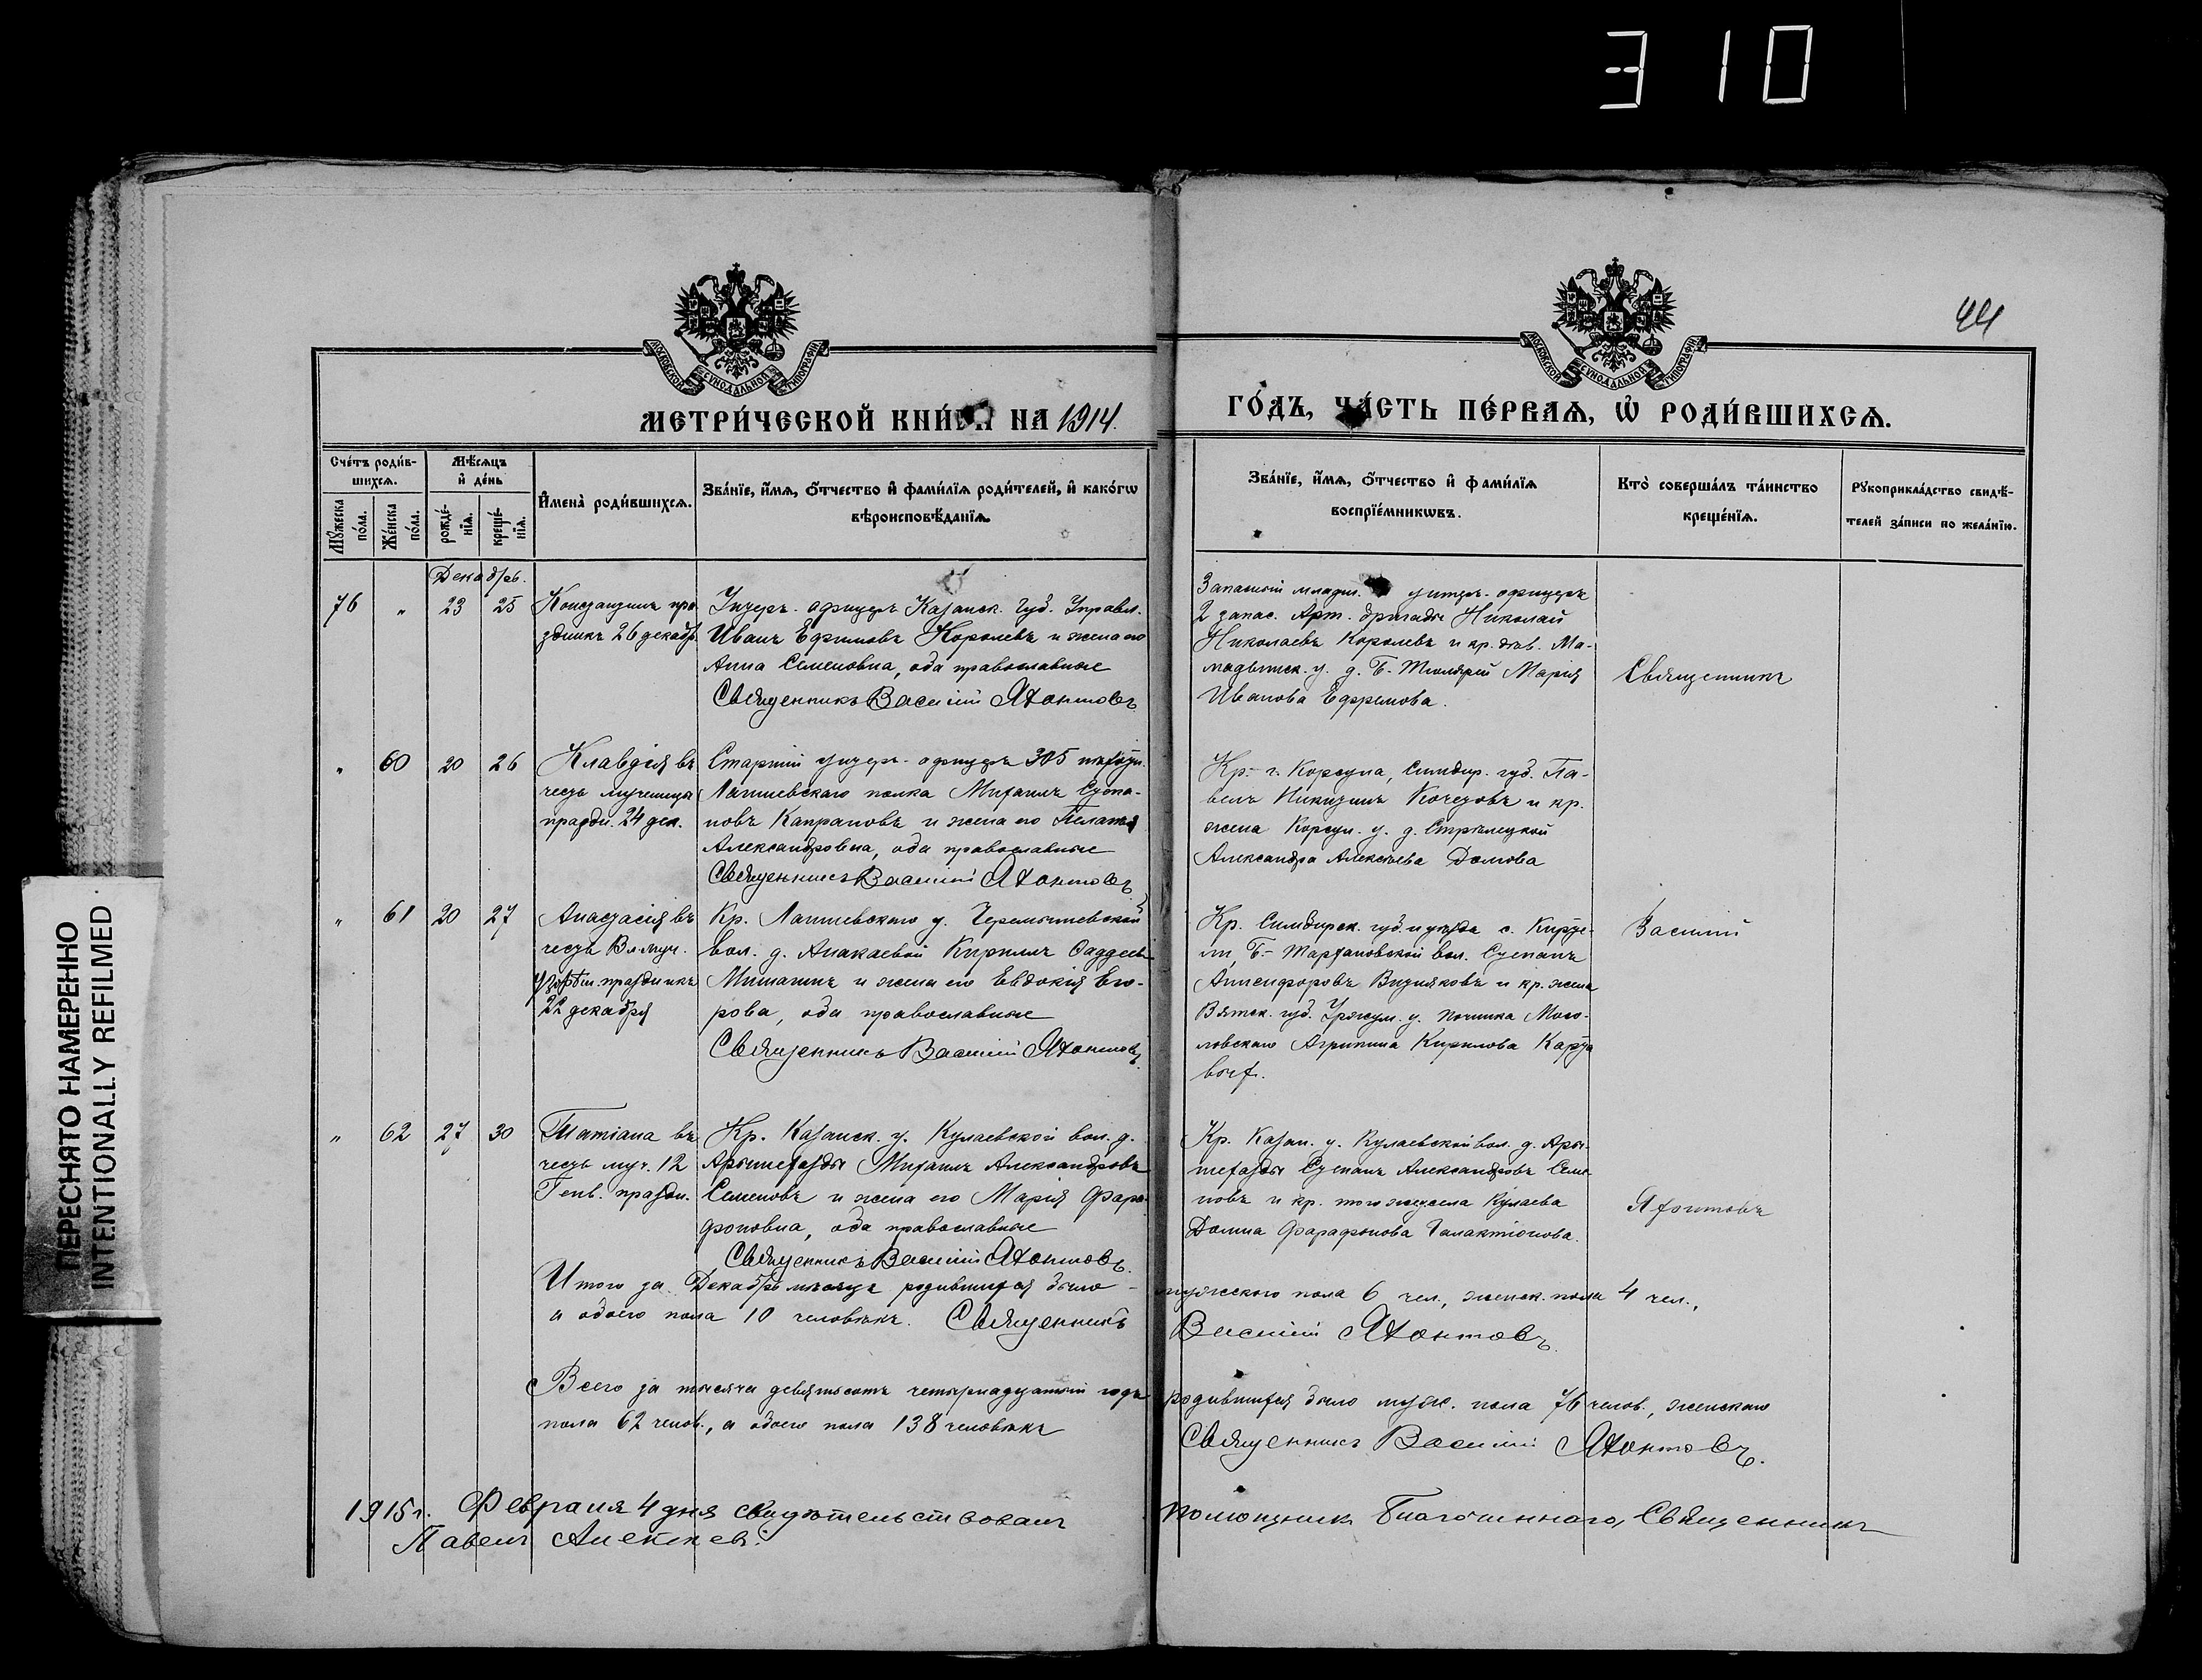 310
44
МЕТРИ́ЧЕСКОЙ КНИ́ГИ НА 1914.
ГО́ДЪ, ЧА́СТЬ ПЕ́РВАѦ, Ѡ҆ РОДИ́ВШИХСѦ.
МОСКОВСКОЙ СѴНОДАЛЬНОЙ ТИПОГРАФІИ
МОСКОВСКОЙ СѴНОДАЛЬНОЙ ТИПОГРАФІИ
Сче́тъ роди́в-
шихсѧ.
Мꙋ́жеска по́ла.
Же́нска по́ла.
Мѣ́сѧцъ
и҆ де́нь
рожде́-
нїѧ.
креще́-
нїѧ.
И҆мена̀ роди́вшихсѧ.
Зва́нїе, и҆́мѧ, ѻ҆́тчество и҆ фами́лїѧ роди́телей, и҆ како́гѡ
вѣроисповѣ́данїѧ.
Зва́нїе, и҆́мѧ, ѻ҆́тчество и҆ фами́лїѧ
воспрїе́мникѡвъ.
Кто̀ соверша́лъ та́инство
креще́нїѧ.
Рꙋкоприкла́дство свидѣ́-
телей за́писи по жела́нїю.
Декабрь.
76 " 23 25
Константинъ пра
здникъ 26 декабр.
Унтеръ-офицеръ Казанск. Губ. Управл.
Иванъ Ефимовъ Королевъ и жена его
Анна Семеновна, оба православные
Священникъ Василій Яхонтовъ
Запасный младш. унтеръ-офицеръ
2 запас. Арт. бригады Николай
Николаевъ Королевъ и кр. дѣв. Ма-
мадышск. у. д. Б.- Марія
Иванова Ефремова.
Священникъ
" 60 20 26
Клавдія въ
честь мученицы
праздн. 24 дек.
Старшій унтеръ-офицеръ 305 пѣхотн.
Лаишевскаго полка Михаилъ Степа-
новъ Капрановъ и жена его Пелагія
Александровна, оба православные
Священникъ Василій Яхонтовъ
Кр. г. Корсуна, Симбир. губ. Па-
велъ Никитинъ Кочетовъ и кр.
жена Корсун. у. д. Стрѣлецкой
Александра Алексѣева Домова
" 61 20 27
Анастасія въ
честь Вл. муч.
Узорѣш. праздникъ
22 декабря
Кр. Лаишевскаго у. Черемышевской
вол. д. Анакаевой Кириллъ Фаддеевъ
Мишанинъ и жена его Евдокія Его-
рова, оба православные
Священникъ Василій Яхонтовъ.
Кр. Симбирск. губ. и уѣзда с.
Б.-Тархановской вол. Степанъ
Видняковъ и кр. жена
Вятск. губ. Уржум. у. починка Мосо-
ловскаго Агрипина Кирилова Карта
выхъ.
Василій
" 62 27 30
Татіана въ
честь муч. 12
Генв. праздн.
Кр. Казанск. у. Кулаевской вол. д.
Арышхазды Михаилъ Александровъ
Семеновъ и жена его Марія Фара-
фоновна, оба православные
Священникъ Василій Яхонтовъ.
Кр. Казан. у. Кулаевской вол. д. Ары-
шхазды Степанъ Александровъ Семе-
новъ и кр. того же у. села Кулаева
Домна Фарафонова Галактіонова.
Яхонтовъ
Итого за Декабрь мѣсяцъ родившихся было -
мужескаго пола 6 чел., женск. пола 4 чел.,
а обоего пола 10 человѣкъ. Священникъ
Василій Яхонтовъ.
Всего за тысяча девятьсотъ четырнадцатый годъ
родившихся было муж. пола 76 челов., женскаго
пола 62 челов., а обоего пола 138 человѣкъ
Священникъ Василій Яхонтовъ.
1915 г. Февраля 4 дня свидѣтельствовалъ
помощникъ Благочиннаго, Священникъ
Павелъ Алексѣевъ.
ПЕРЕСНЯТО НАМЕРЕННО
INTENTIONALLY REFILMED